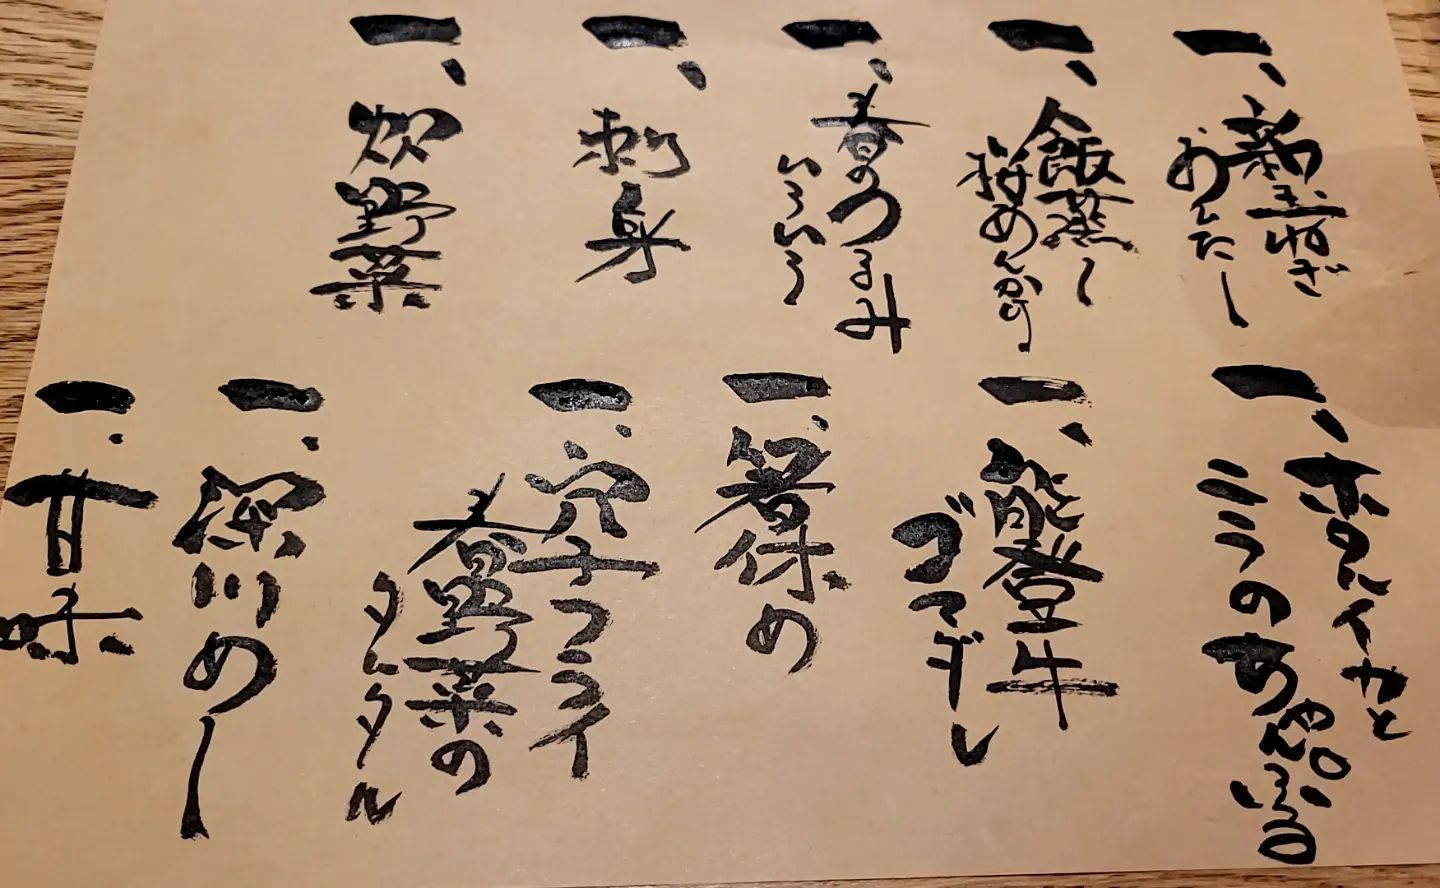 一、新玉ねぎ
おひたし
一、飯蒸し
一、春のつまみ
いろいろ
一、刺身
一、炊野菜
一、ホタルイカと
ニラのちゃんぷる
一、能登牛
ゴマダレ
一、箸休め
一、穴子フライ
春野菜の
タルタル
一、深川めし
一、甘味